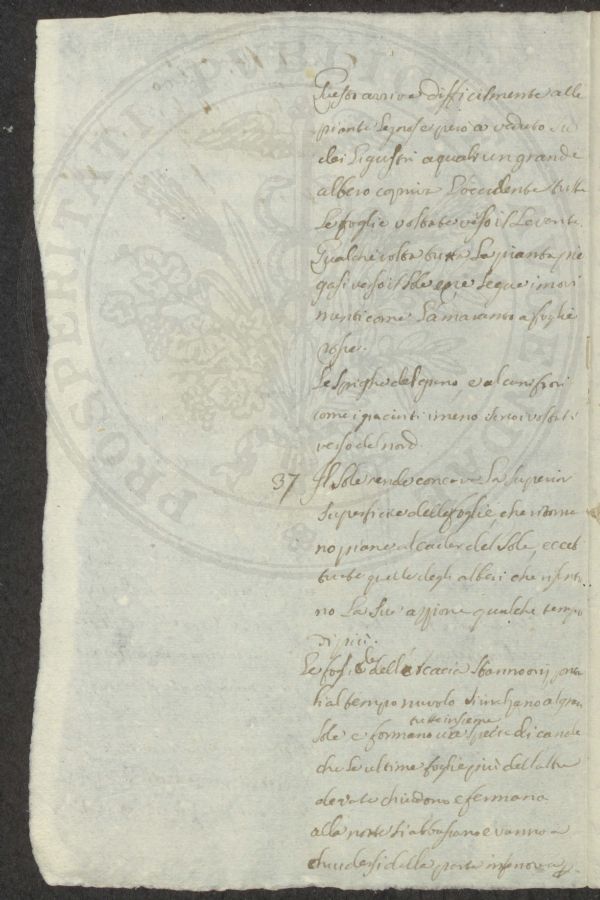 Questo arriva difficilmente alle
piante legnose però à veduto
dei Ligustri a quali un grande
albero copriva l'occidente tutte
le foglie voltate verso il Levente.
Qualche volta tutta la pianta pie
gasi verso il sole e ne segue i movi
menti come l'amaranto a foglie
rosse.
Le spighe del grano, e alcuni fiori
come i giacinti meno
verso del nord.
37 Il Sole rende concava la superior
superficie delle foglie, che ritorna
no piane al cader del Sole, eccet
tuate quelle degli alberi che risento
no la sua azione qualche tempo
di più.
Le foglie della Acacia stanno
li al tempo nuvolo s'inalzano al gran
Sole e formano una specie di canale
tutte insieme
che le ultime foglie più dell'altre
elevate chiudono e fermano
alla notte si abbassano e vanno a
chiudersi dalla parte
PROSPERITATI PUBLICAE AUGENDAE